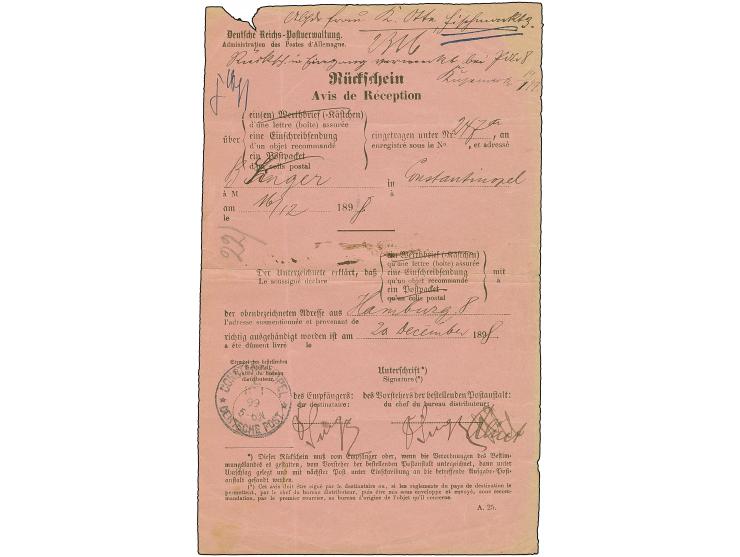 Absdr Frau K. Otte, Fischmarkt 2.
Deutsche Reichs-Postverwaltung.
Administration des Postes d'Allemagne.
2316
Rücksch. in
vermerkt bei
8
Rückschein
Avis de Réception
ein(en) Werthbrief (-Kästchen)
d'une lettre (boîte) assurée
über eine Einschreibsendung eingetragen unter Nr. 247a, an
d'un objet recommandé enregistré sous le No , et adressé
ein Postpacket
d'un colis postal
Singer in Constantinopel
à M à
am 16/12 1898
le
22
ein Werthbrief (-Kästchen)
qu'une lettre (boîte) assurée
Der Unterzeichnete erklärt, daß eine Einschreibsendung mit
Le soussigné déclare qu'un objet recommandé a
ein Postpacket
qu'un colis postal
der obenbezeichneten Adresse aus Hamburg 8
l'adresse susmentionnée et provenant de
richtig ausgehändigt worden ist am 20 December 1898
a été dûment livré le
Stempel der bestellenden
Postanstalt.
Timbre du bureau
distributeur.
Unterschrift*)
Signature (*)
CONSTANTINOPEL
1
99
5-6N
DEUTSCHE POST
des Empfängers: des Vorstehers der bestellenden Postanstalt:
du destinataire: du chef du bureau distributeur:
*) Dieser Rückschein muß vom Empfänger oder, wenn die Verordnungen des Bestim-
mungslandes es gestatten, vom Vorsteher der bestellenden Postanstalt unterzeichnet, dann unter
Umschlag gelegt und mit nächster Post unter Einschreibung an die betreffende Aufgabe-Post-
anstalt gesandt werden.
(*) Cet avis doit être signé par le destinataire ou, si les règlements du pays de destination le
permettent, par le chef du bureau distributeur, puis être mis sous enveloppe et envoyé, sous recom-
mandation, par le premier courrier, au bureau d'origine de l'objet qu'il concerne.
A. 25.